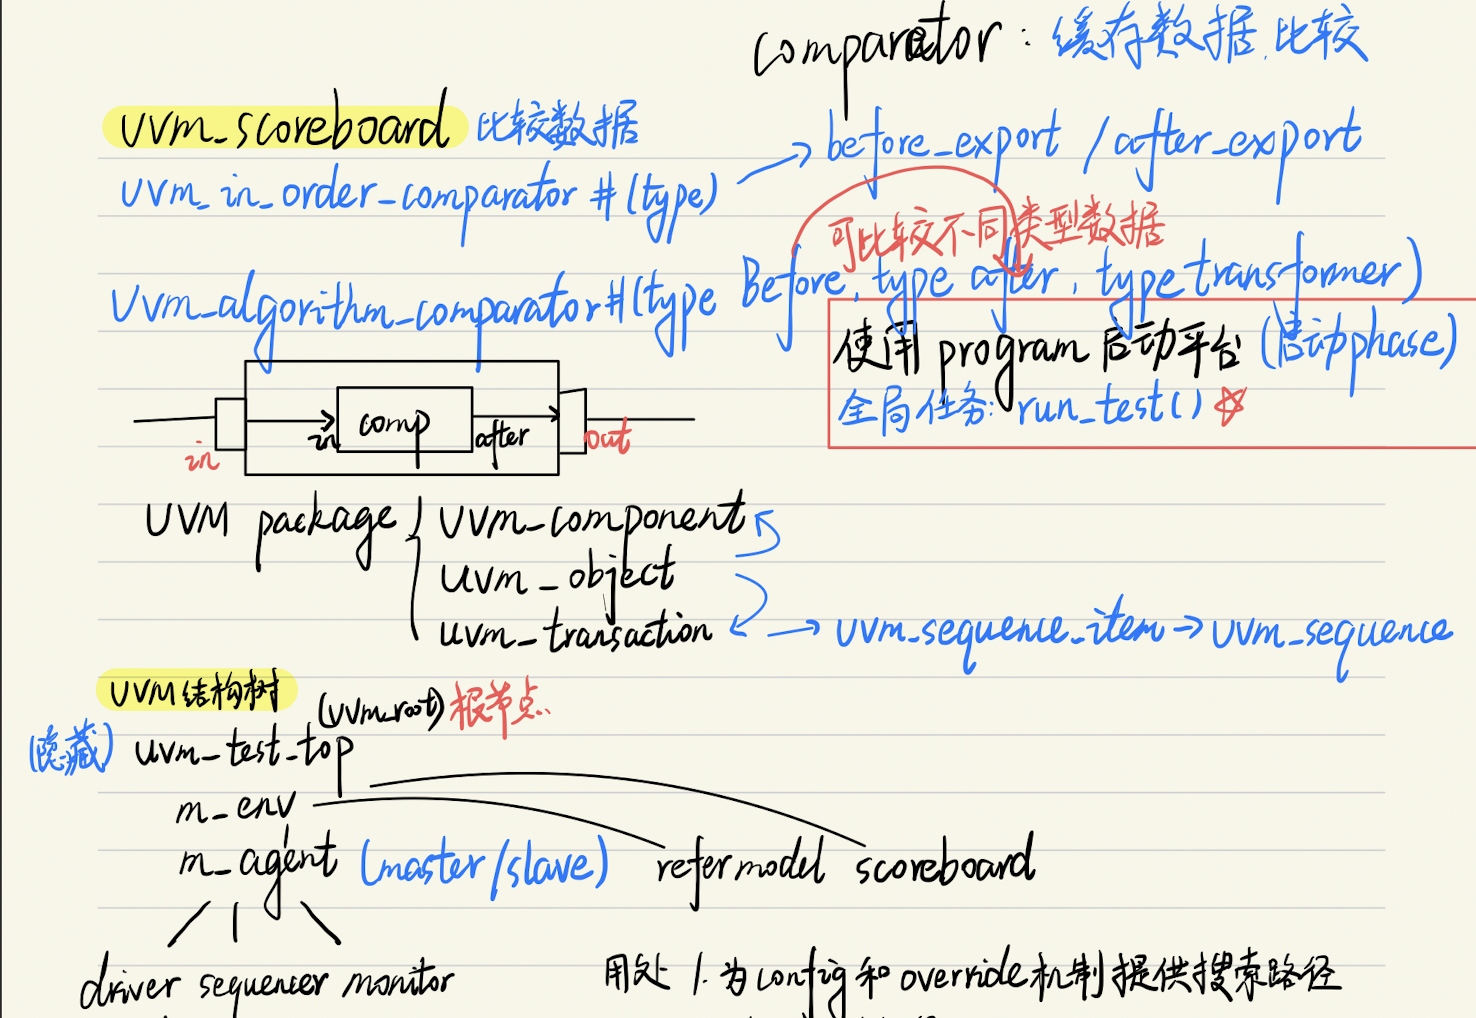 comparator：缓存数据,比较
uvm_scoreboard 比较数据
uvm_in_order_comparator #(type) → before_export /after_export
可比较不同类型数据
uvm_algorithm_comparator#(type Before, type after, type transformer)
使用 program 启动平台 (启动phase)
全局任务: run_test()
in in comp after out
UVM package { uvm_component
uvm_object
uvm_transaction → uvm_sequence_item → uvm_sequence
UVM结构树
(uvm_root) 根节点
(隐藏) uvm_test_top
m_env
m_agent (master/slave) refermodel scoreboard
driver sequencer monitor
用处 1. 为config和override机制提供搜索路径